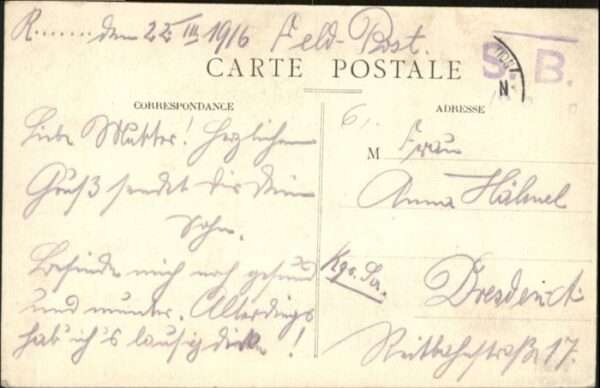 R....... den 22. III 1916 Feld-Post.
CARTE POSTALE
S. B.
CORRESPONDANCE
ADRESSE
Liebe Mutter! Herzlichen
Gruß sendet dir dein
Sohn.
Befinde mich noch gesund
und munter. Allerdings
hab ich's lausig dicke!
M Frau
Anna Hähnel
Dresden
Kgr. Sa.
Reitbahnstraße 17.